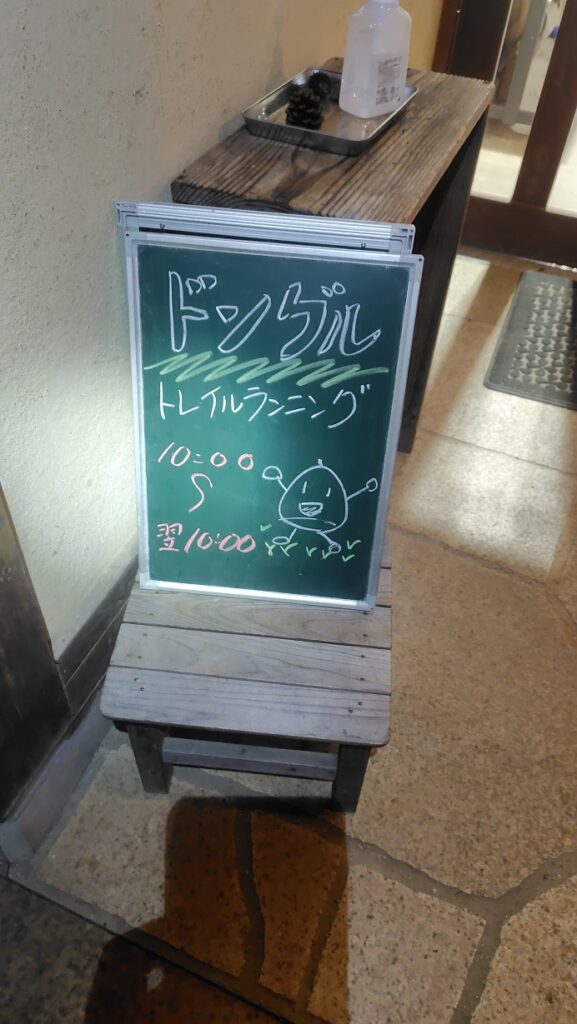 ドングル
トレイルランニング
10:00
〜
翌10:00